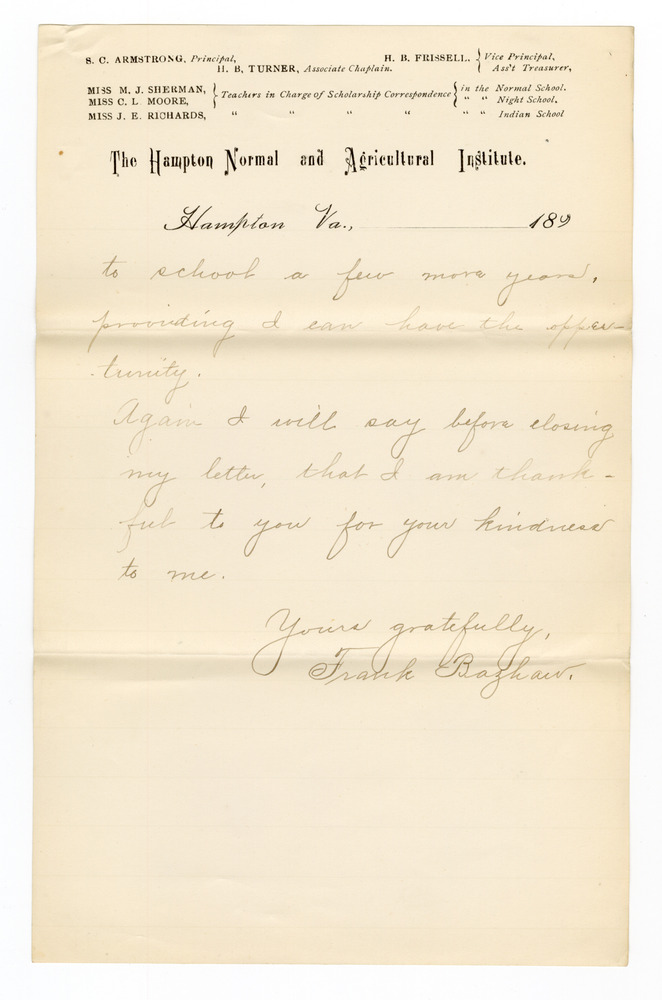 S. C. ARMSTRONG, Principal, H. B. FRISSELL, { Vice Principal,
H. B, TURNER, Associate Chaplain. Ass't Treasurer,
MISS M. J. SHERMAN, } Teachers in Charge of Scholarship Correspondence { in the Normal School.
MISS C. L. MOORE, " " Night School,
MISS J. E. RICHARDS, " " " " " " Indian School
The Hampton Normal and Agricultural Institute.
Hampton Va., 189
to school a few more years,
providing I can have the oppor-
tunity.
Again I will say before closing
my letter, that I am thank-
ful to you for your kindness
to me.
Yours gratefully,
Frank Bazhaw.